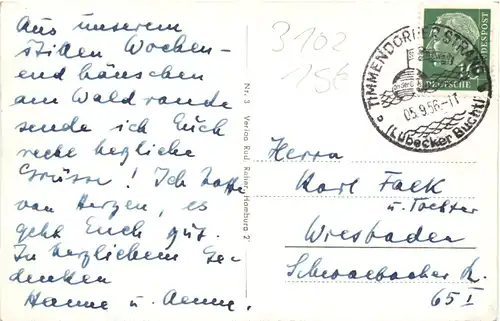 Aus unserem
stillen Wochen-
endhäuschen
am Waldrande
sende ich Euch
recht herzliche
Grüsse! Ich hoffe
von Herzen, es
geht Euch gut.
In herzlichem Ge-
denken
Hanne u.
Nr. 3 Verlag Rud. Reher, Hamburg 2
3102
156
TIMMENDORFER STRAND
05.9.56-11
(Lübecker Bucht)
DEUTSCHE
BUNDESPOST
Herrn
Karl Falk
u. Tochter
Wiesbaden
Schwalbacher Str.
65 I